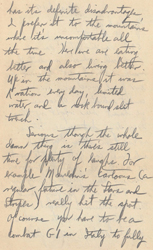 has its definite disadvantages
I prefer it to the mountains
where it's uncomfortable all
the time. We are eating
better and also living better.
Up in the mountains it was
K rations every day, limited
water and no
touch.
Serious though the whole
damn thing is there's still
time for plenty of laughs. For
example Mauldin's Cartoons (a
regular feature in the Stars and
Stripes) really hit the spot
of course you have to be a
combat GI in Italy to fully